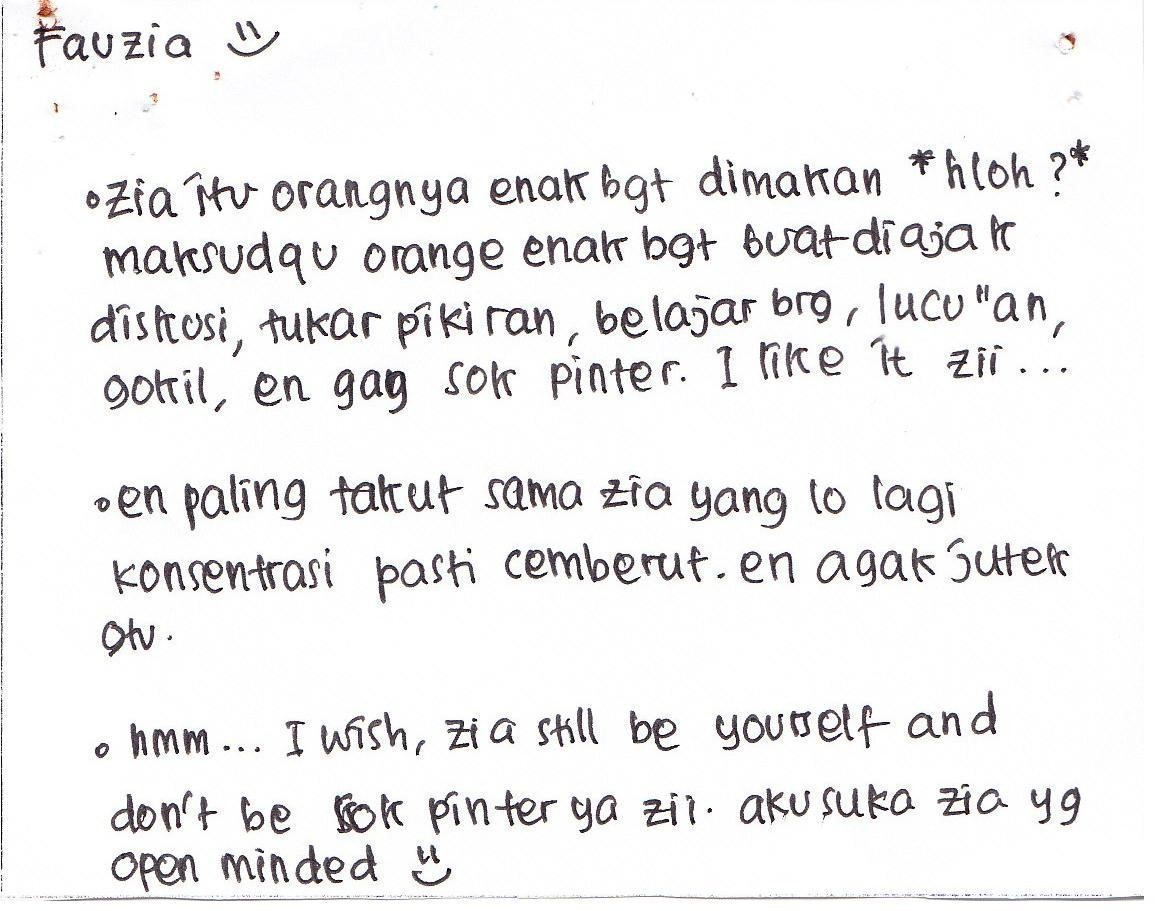 Fauzia
• Zia itu orangnya enak bgt dimakan *hloh?*
maksudqu orange enak bgt buat diajak
diskusi, tukar pikiran, belajar brg, lucu"an,
gokil, en gag sok pinter. I like it zii...
• en paling takut sama zia yang lo lagi
konsentrasi pasti cemberut. en agak jutek
gtu.
• hmm... I wish, zia still be yourself and
don't be sok pinter ya zii. aku suka zia yg
open minded